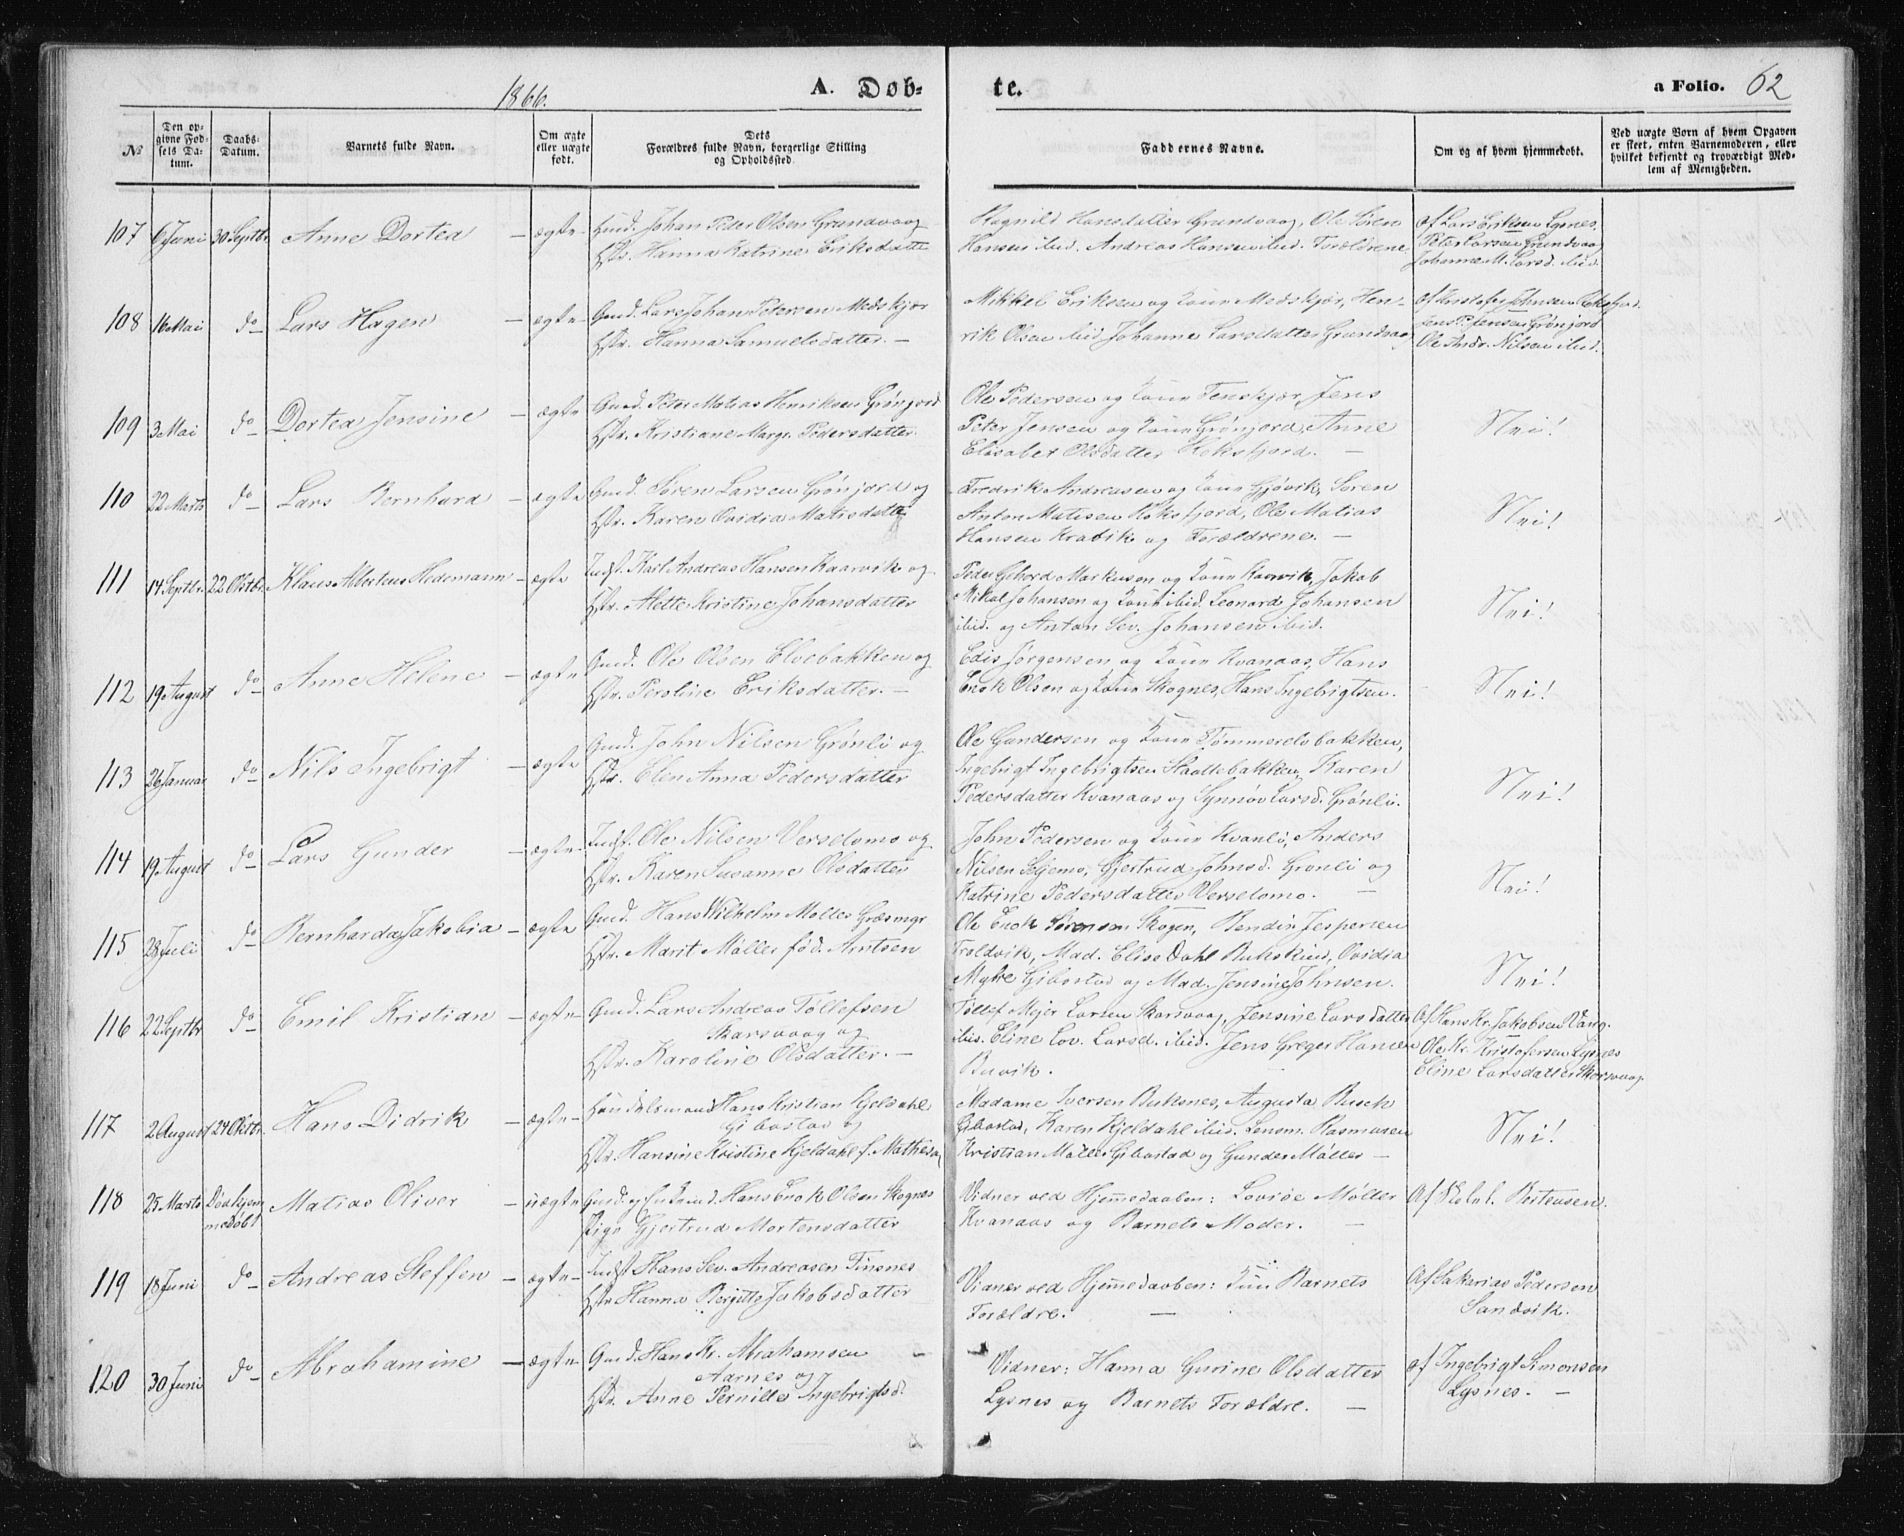 1866.
A. Døb-
te.
a Folio. 62
No
Den op-
givne Fød-
sels Da-
tum.
Daabs-
Datum.
Barnets fulde Navn.
Om ægte
eller uægte
født.
Dets
Forældres fulde Navn, borgerlige Stilling
og Opholdssted.
Faddernes Navne.
Om og af hvem hjemmedøbt.
Ved uægte Born af hvem Opgaven
er skeet, enten Barnemoderen, eller
hvilket bekjendt og troværdigt Med-
lem af Menigheden.
107 6 Juni 30 Septbr. Anne Dortea – ægte
Johan Peder Olsen Grundvaag
Hstr. Hanna Katrine Eriksdatter
Ragnild Hansdatter Grundvaag, Ole Søren
Hansen ibid. Andreas Hansen ibid. Forældrene
Af Lars Eriksen Lysnes.
Peter Larsen Grundvaag
Johanne M. Larsd. ibid.
108 16 Mai do Lars Hagen – ægte
Gmd. Lars Johan Petersen Medskjær
Hstr. Hanna Samuelsdatter. –
Mikkel Eriksen og Kone Medskjær, Hen-
rik Olsen ibid. Johanne Larsdatter Grundvaag
Af Kristofer Johnsen
Jens P. Jensen Grønjord
Ole Andr. Nilsen ibid.
109 3 Mai do Dortea Jensine – ægte
Gmd. Peter Matias Henriksen Grønjord
Hstr. Kristiane Margr. Pedersdatter.
Ole Pedersen og Kone Finskjær, Jens
Peter Jensen og Kone Grønjord, Anne
Elisabet Olsdatter Roksfjord. –
Nei!
110 22 Marts do Lars Bernhard – ægte
Gmd. Søren Larsen Grønjord og
Hstr. Karen Ovidia Matisdatter
Fredrik Andreasen og Kone Gjøvik, Søren
Anton Matisen Roksfjord, Ole Matias
Hansen Krabik og Forældrene. –
Nei!
111 14 Septbr. 22 Oktbr. Klaus Albertus Hedemann – ægte
Indst. Karl Andreas Hansen Kaarvik og
Hstr. Alette Kristine Johansdatter
Peder Gehord Markusen og Kone Kaarvik, Jakob
Mikal Johansen og Kone ibid. Leonard Johansen
ibid. og Anton Sev. Johansen ibid.
Nei!
112 19 August do Anne Helene – ægte
Gmd. Ole Olsen Elvebakken og
Hstr. Peroline Eriksdatter. –
Edis Jørgensen og Kone Kvanaas, Hans
Enok Olsen og Kone Skognes, Hans Ingebrigtsen.
Nei!
113 26 Januar do Nils Ingebrigt – ægte
Gmd. John Nilsen Grønli og
Hstr. Elen Anna Pedersdatter
Ole Gundersen og Kone Tømmerelvbakken,
Ingebrigt Ingebrigtsen Slaattebakken, Karen
Pedersdatter Kvanaas og Synnøv Larsd. Grønli.
Nei!
114 19 August do Lars Gunder – ægte
Indst. Ole Nilsen Verselvmo og
Hstr. Karen Susanne Olsdatter
John Pedersen og Kone Kvanli, Anders
Nilsen Seljemo, Gjertrud Johnsd. Grønli og
Katrine Pedersdatter Verselvmo. –
Nei!
115 28 Juli do Bernharda Jakobia – ægte
Gmd. Hans Wilhelm Møller Græsmyr
Hstr. Marit Møller fød. Arntsen
Ole Enok Sørensen Skogen, Bendix Jespersen
Troldvik, Mad. Elise Dahl Bukskind, Ovidia
Myhre Gibostad og Mad. Jensine Johnsen.
Nei!
116 22 Septbr do Emil Kristian – ægte
Gmd. Lars Andreas Tøllefsen
Skarsvaag og
Hstr. Karoline Olsdatter. –
Tøllef Mejer Larsen Skarsvaag, Jensine Larsdatter
ibid. Eline Lov. Larsd. ibid. Jens Greger Hansen
Buvik.
Af Hans Kr. Jakobsen Vang.
Ole Kr. Kristofersen Lysnes
Eline Larsdatter Skarsvaag.
117 2 August 24 Oktbr. Hans Didrik – ægte
Handelsmand Hans Kristian Kjeldahl
Gibostad og
Hstr. Hansine Kristine Kjeldahl f. Mathesen
Madame Iversen Buksnes, Augusta Busch
Gibostad, Karen Kjeldahl ibid. Lensm. Rasmusen
Kristian Møller Gibostad og Gunder Møller –
Nei!
118 25 Marts Død hjem-
medøbt Matias Oliver – uægte
Gmd. og Enkemd. Hans Enok Olsen Skognes
Pige Gjertrud Mortensdatter
Vidner ved Hjemmedaaben: Lovise Møller
Kvanaas og Barnets Moder. –
Af Bertensen.
119 18 Juni do Andreas Steffen – ægte
Indst. Hans Sev. Andreasen Finsnes
Hstr. Hanna Bergitte Jakobsdatter
Vidner ved Hjemmedaaben: Kun Barnets
Forældre. –
Af Sakarias Pedersen
Sandvik.
120 30 Juni do Abrahamine – ægte
Gmd. Hans Kr. Abrahamsen
Aarnes og
Hstr. Anne Pernille Ingebrigtsd.
Vidner: Hanna Gurine Olsdatter
Lysnes og Barnets Forældre. –
af Ingebrigt Simonsen
Lysnes. –